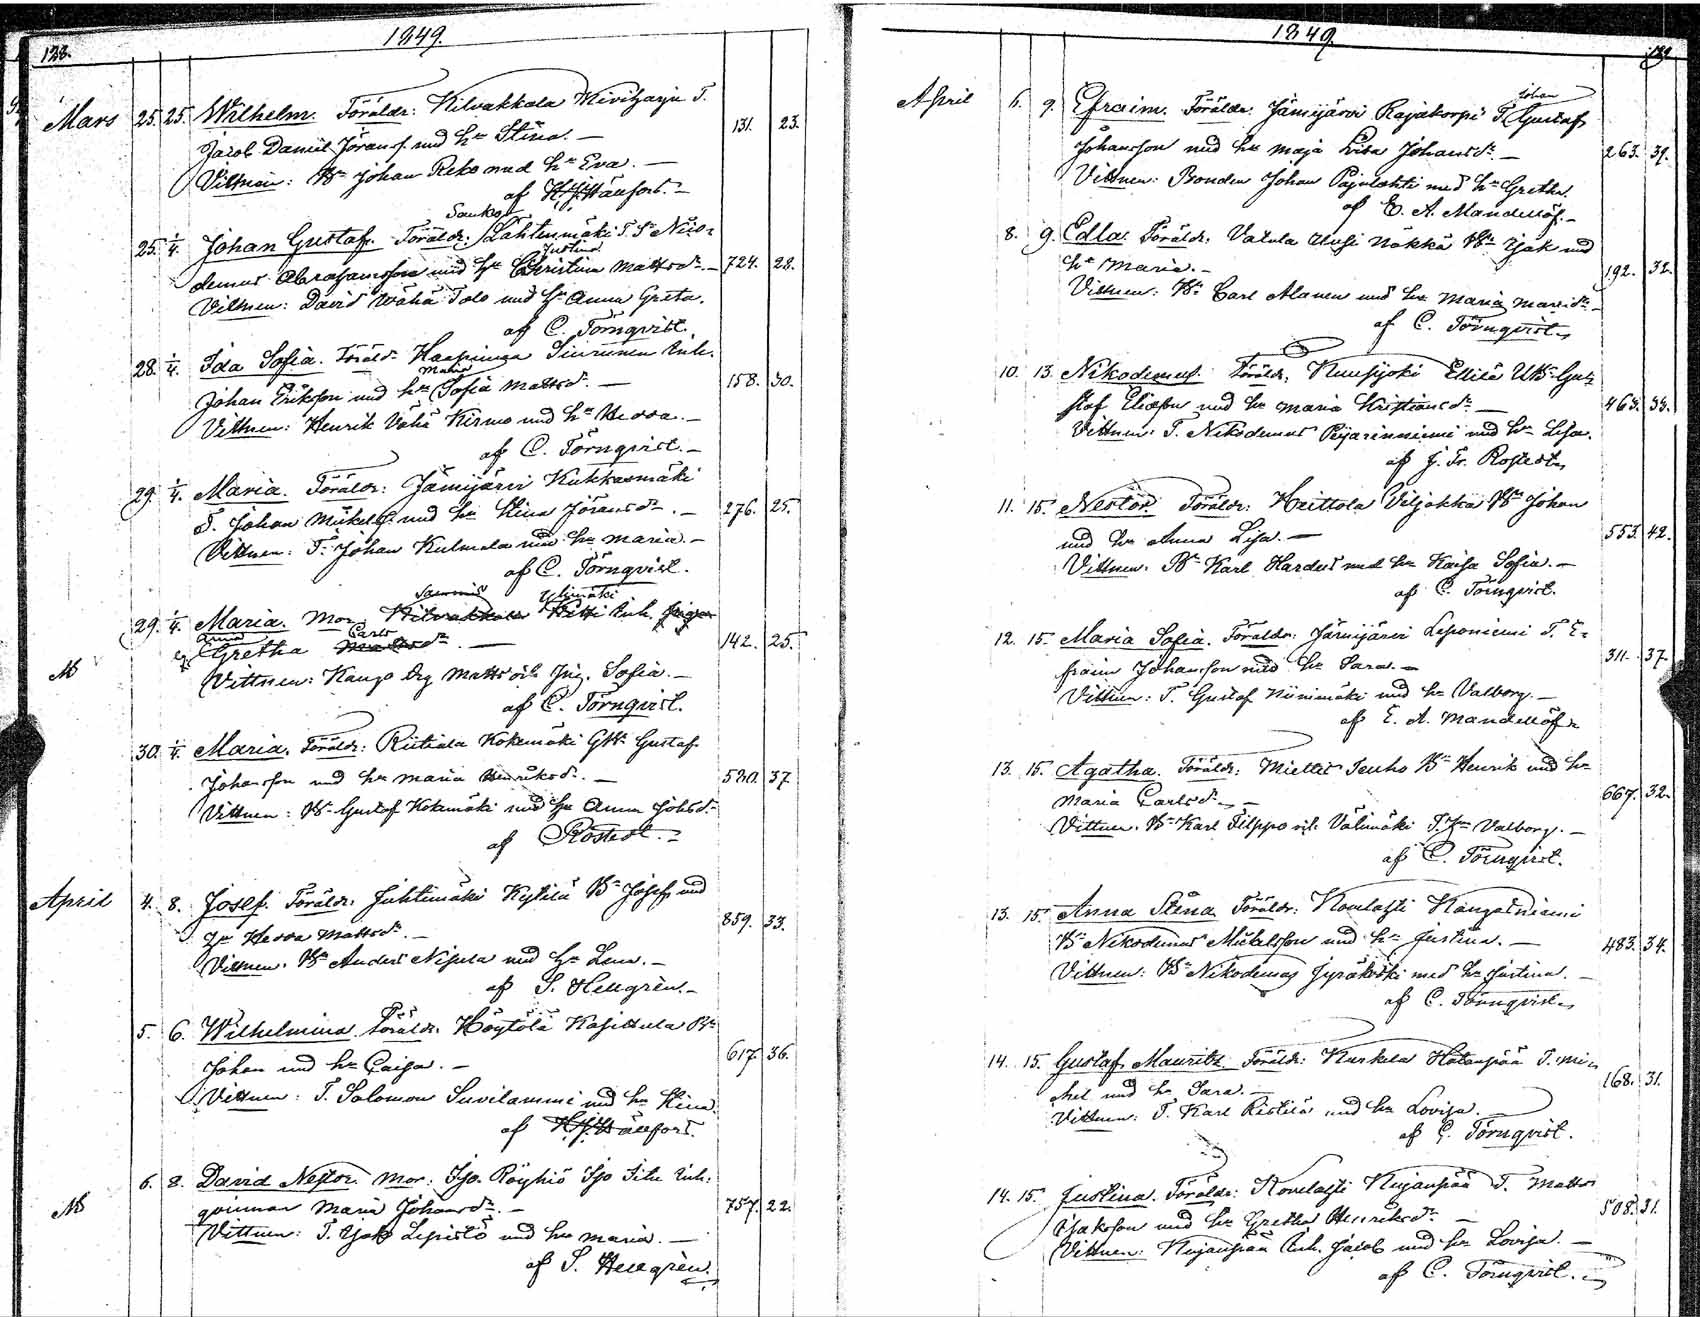 128.
1849.
Mars 25. 25. Wilhelm. Föräldr: Kilvakkala Kiviharju T.
Jacob Daniel Göransf. med hu Stina. — 131. 23.
Vittnen: Bn Johan Reko med hu Eva. —
af
Sanko
25. 1/4. Johan Gustaf. Föräldr: Lähteenmäki T. S. Nico=
Justina
demus Abrahamsson med hu Christina Mattsdr. — 724. 28.
Vittnen: David Wähä Tolo med hu Anna Greta.
af C. Törnqvist.
28. 1/4. Ida Sofia. Föräldr. Inh.
Maria
Johan Eriksson med hu Sofia Mattsdr. — 158. 30.
Vittnen: Henrik Vähä Kirmo med hu Hedda. —
af C. Törnqvist. —
29. 1/4. Maria. Föräldr: Jämijärvi Kukkasmäki
T. Johan Mickelsf. med hu Stina Göransdr. — 276. 25.
Vittnen: T. Johan Kulmala med hu Maria. —
af C. Törnqvist.
Ylimäki
29. 1/4. Maria. Mor Kilvakkala Inh.
Anna Carls
Gretha dr. — 142. 25.
Vittnen: Kango Drg Matts och Pig. Sofia. —
af C. Törnqvist.
30. 1/4. Maria. Föräldr: Riitiala Kokemäki Gustaf
Johansson med hu Maria Henriksdr. — 530. 37.
Vittnen: Bn Gustaf Kokemäki med hu Anna Johsdr
af Rostedt. —
April 4. 8. Josef. Föräldr: Juhtimäki Kytölä Bn Josef med
hu Hedda Mattsdr. — 859. 33.
Vittnen: Bn Anders Nipula med hu Lena. —
af S. Hellgrèn. —
5. 6. Wilhelmina. Föräldr: Höytölä Kasittula Bn
Johan med hu Caisa. — 617. 36.
Vittnen: T. Salomon Suvilammi med hu Stina.
af
6. 8. David Nestor. Mor: Ijo. Röyhiö Inh.
qvinnan Maria Johansdr. — 757. 22.
Vittnen: T. Isak Lepistö med hu Maria. —
af S. Hellgrèn.
1849.
129.
Johan
April 6. 9. Efraim. Föräldr. Jämijärvi Rajakorpi T. Gustaf
Johansson med hu Maja Lisa Johansdr. — 263. 39.
Vittnen: Bonden Johan Pajulahti med hu Gretha
af E. A. Mandellöf. —
8. 9. Edla. Föräldr. Vatula Uusi Näkkä Bn Isak med
hu Maria. — 192. 32.
Vittnen: Bn Carl Alanen med hu Maria
af C. Törnqvist.
10. 13. Nikodemus. Föräldr: Kuusijoki Ellilä Gus=
staf Eliasson med hu Maria Kristiansdr. — 463. 33.
Vittnen: T. Nikodemus Peijariniemi med hu Lisa.
af J. Fr. Rostedt.
11. 15. Nestor. Föräldr: Heittola Viljakka Bn Johan
med hu Anna Lisa. — 553. 42.
Vittnen: Bn Karl Harders med hu Kaisa Sofia. —
af C. Törnqvist.
12. 15. Maria Sofia. Föräldr: Jämijärvi Leponiemi T. E=
fraim Johansson med hu Sara. — 311. 37.
Vittnen: T. Gustaf Niinimäki med hu Valborg. —
af E. A. Mandellöf
13. 15. Agatha. Föräldr: Miettis Jeuho Bn Henrik med hu
Maria Carlsdr. — 667. 32.
Vittnen: Bn Karl Filppo och Välimäki T. hu Valborg. —
af C. Törnqvist.
13. 15. Anna Stina. Föräldr: Kovelahti Kangasniemi
Bn Nikodemus Mickelsson med hu Justina. — 483. 34.
Vittnen: Bn Nikodemus Jyräkoski med hu Justina. —
af C. Törnqvist.
14. 15. Gustaf Mauritz. Föräldr: Kurkela Hatanpää T. Mi=
chel med hu Sara. — 168. 31.
Vittnen: T. Karl Ristilä med hu Lovisa.
af C. Törnqvist.
14. 15. Justina. Föräldr: Kovelahti Kujanpää T. Matts
Isaksson med hu Gretha Henriksdr. — 508. 31.
Vittnen: Kujanpää Inh. Jacob med hu Lovisa. —
af C. Törnqvist.